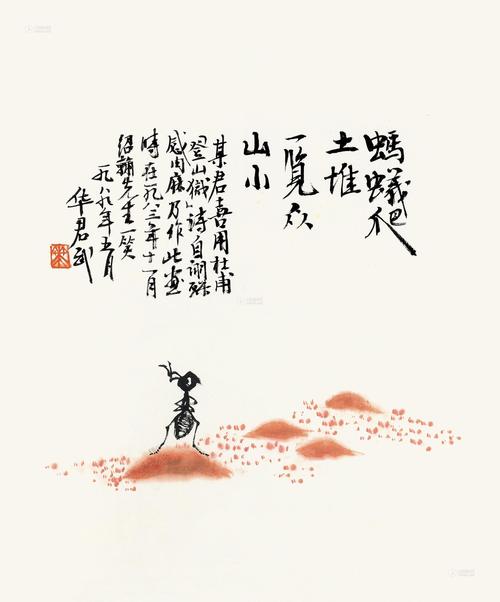 螞蟻爬
土堆
一覧众
山小
某君喜用杜甫
「登山嶽」诗自诩殊
感肉麻乃作此画
時在一九八三年十一月
绍先生一笑
一九八九年五月
华君武